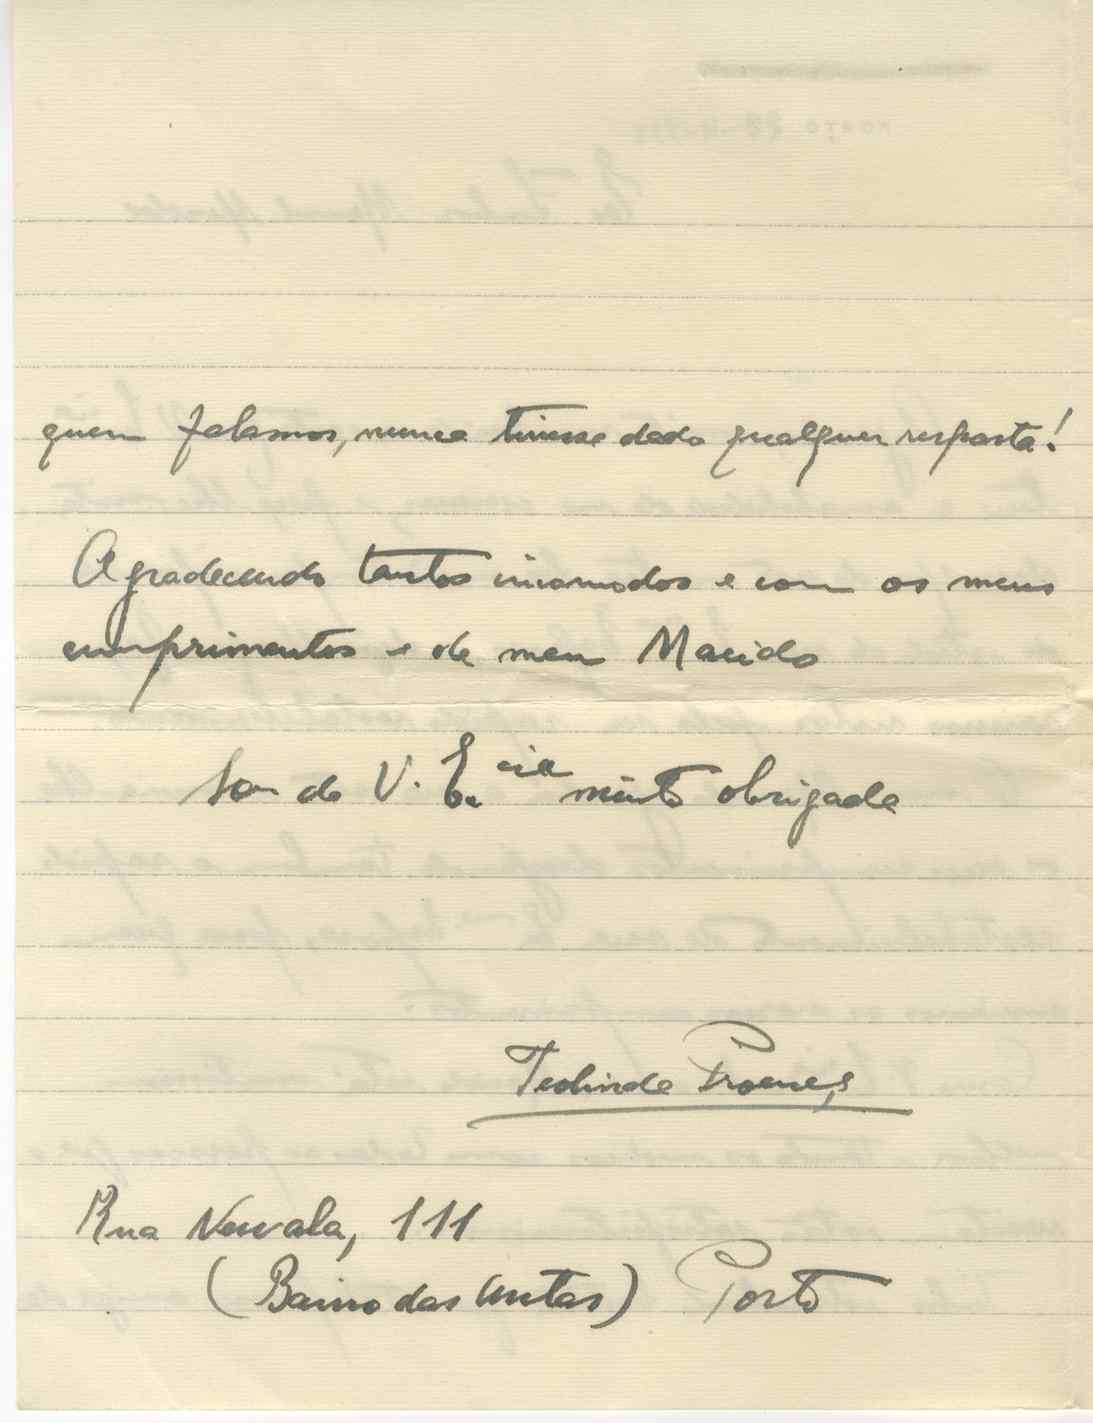 quem falamos, nunca tivesse dado qualquer resposta!
Agradecendo tantos incomodos e com os meus
cumprimentos e de meu Marido
Sou de V. Ex.cia muito obrigada
Teolinda Proença
Rua Nevala, 111
(Bairro das Antas) Porto